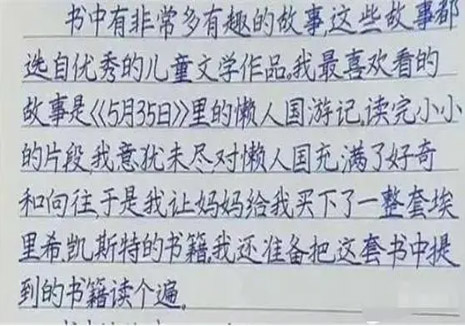 书中有非常多有趣的故事,这些故事都
选自优秀的儿童文学作品。我最喜欢看的
故事是《5月35日》里的懒人国游记,读完小小
的片段,我意犹未尽对懒人国充满了好奇
和向往于是我让妈妈给我买下了一整套埃
里希.凯斯特的书籍,我还准备把这套书中提
到的书籍读个遍。